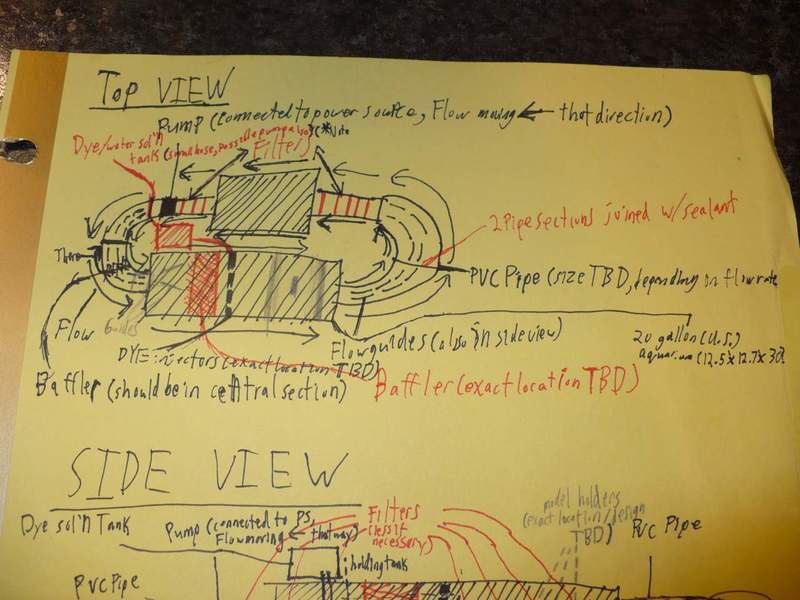 TOP VIEW
PUMP (connected to power source, Flow moving ← that direction)
Dye/water sol'n
tank (small hose, possible pump also)
Filter)
2 Pipe sections joined w/ sealant
PVC Pipe (size TBD, depending on flow rate
Flow
Guides
Flow guides (also in side view)
20 gallon (U.S.)
aquarium (12.5 x 12.7 x 30
DYE injectors (exact location TBD)
Baffler (should be in central section)
Baffler (exact location TBD)
SIDE VIEW
Dye sol'n Tank
Pump (connected to PS
Flow moving ← that way)
Filters
(less if
necessary)
model holders
(exact location/design
TBD)
PVC Pipe
holding tank
PVC Pipe